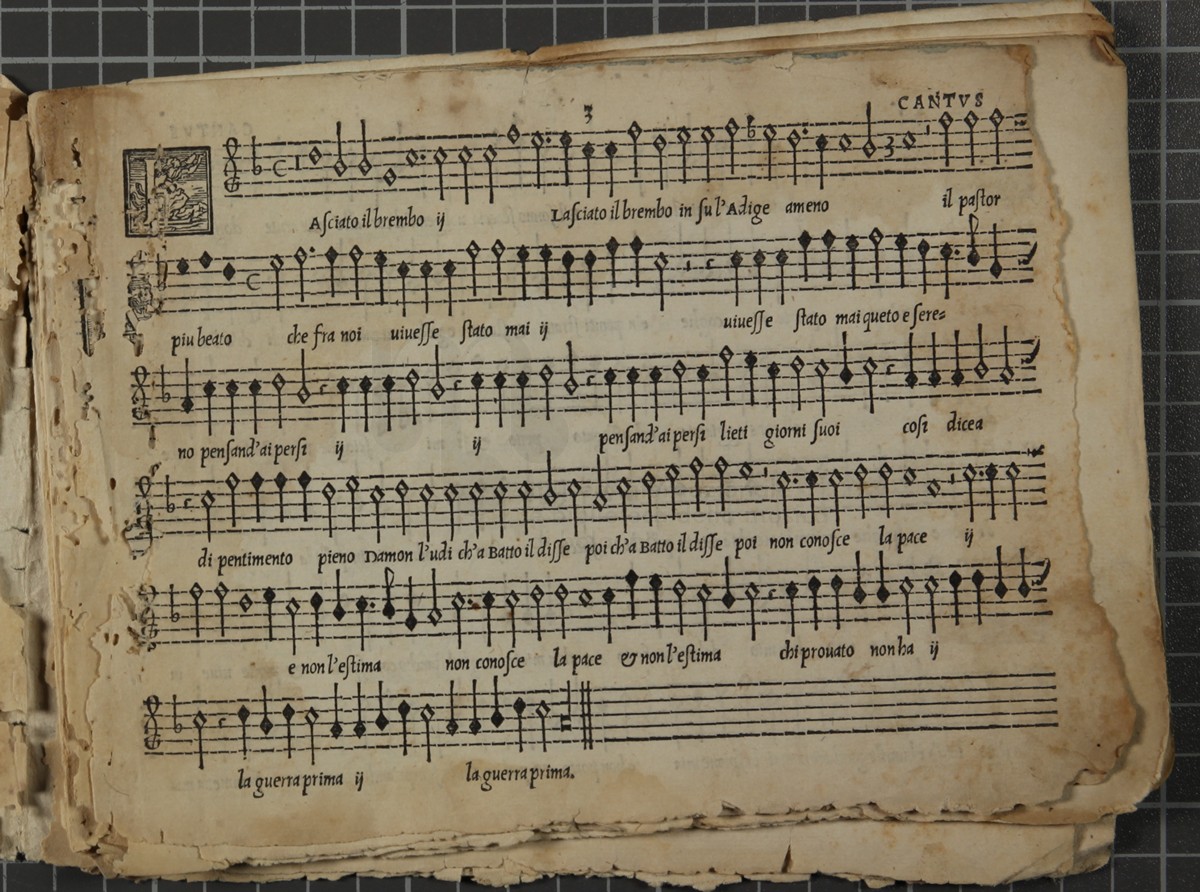 3
CANTVS
LAſciato il brembo ij Laſciato il brembo in ſu l'Adige ameno il paſtor
piu beato che fra noi uiueſſe ſtato mai ij uiueſſe ſtato mai queto e ſere=
no penſand'ai perſi ij ij penſand'ai perſi lieti giorni ſuoi coſi dicea
di pentimento pieno Damon l'udi ch'a Batto il diſſe poi ch'a Batto il diſſe poi non conoſce la pace ij
e non l'eſtima non conoſce la pace & non l'eſtima chi prouato non ha ij
la guerra prima ij la guerra prima.